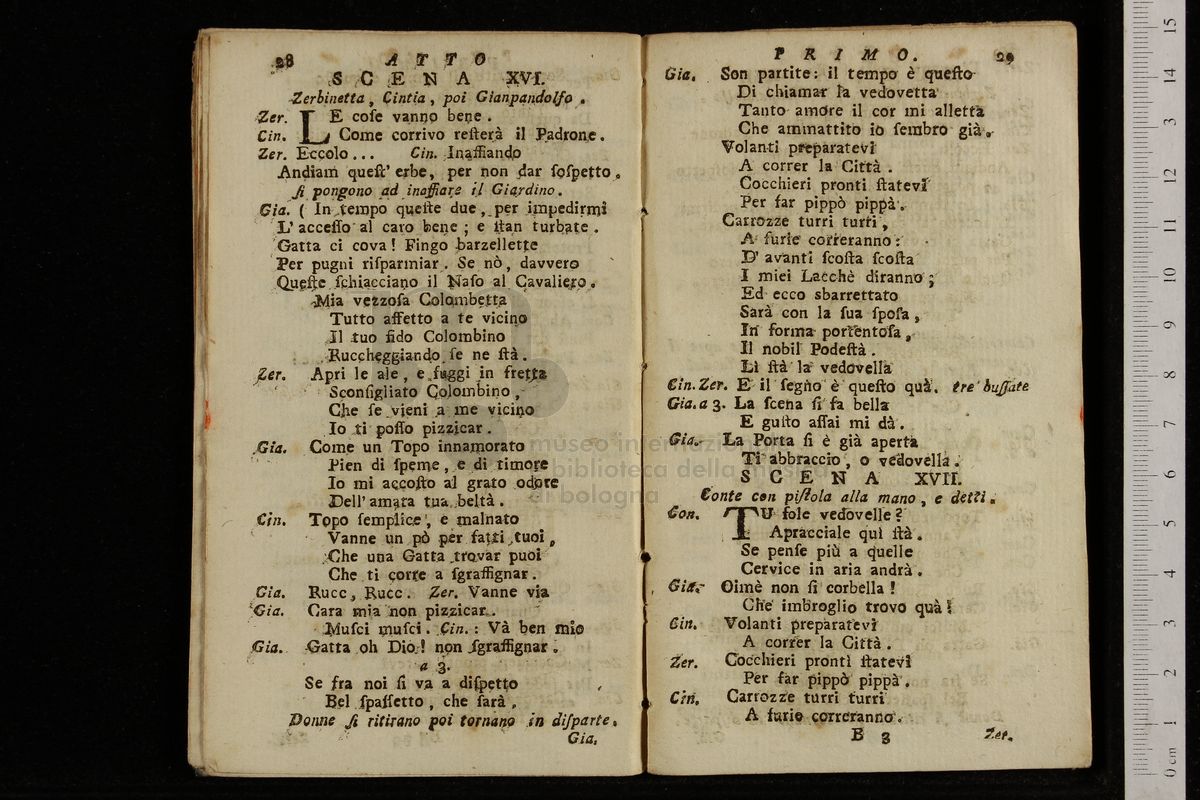 28 ATTO
SCENA XVI.
Zerbinetta, Cintia, poi Gianpandolfo.
Zer. LE coſe vanno bene.
Cin. Come corrivo reſterà il Padrone.
Zer. Eccolo... Cin. Inaffiando
Andiam queſt' erbe, per non dar ſoſpetto.
ſi pongono ad inaffiare il Giardino.
Gia. ( In tempo queſte due, per impedirmi
L' acceſſo al caro bene; e ſtan turbate.
Gatta ci cova! Fingo barzellette
Per pugni riſparmiar. Se nò, davvero
Queſte ſchiacciano il Naſo al Cavaliero.
Mia vezzoſa Colombetta
Tutto affetto a te vicino
Il tuo fido Colombino
Ruccheggiando ſe ne ſtà.
Zer. Apri le ale, e fuggi in fretta
Sconſigliato Colombino,
Che ſe vieni a me vicino
Io ti poſſo pizzicar.
Gia. Come un Topo innamorato
Pien di ſpeme, e di timore
Io mi accoſto al grato odore
Dell' amata tua beltà.
Cin. Topo ſemplice, e malnato
Vanne un pò per fatti tuoi,
Che una Gatta trovar puoi
Che ti corre a ſgraffignar.
Gia. Rucc, Rucc. Zer. Vanne via
Gia. Cara mia non pizzicar.
Muſci muſci. Cin.: Và ben mio
Gia. Gatta oh Dio! non ſgraffignar.
a 3.
Se fra noi ſi va a diſpetto
Bel ſpaſſetto, che ſarà.
Donne ſi ritirano poi tornano in diſparte.
Gia.
PRIMO. 29
Gia. Son partite: il tempo è queſto
Di chiamar la vedovetta
Tanto amore il cor mi alletta
Che ammattito io ſembro già.
Volanti preparatevi
A correr la Città.
Cocchieri pronti ſtatevi
Per far pippò pippà.
Carrozze turri turri,
A furie correranno:
D' avanti ſcoſta ſcoſta
I miei Lacchè diranno;
Ed ecco sbarrettato
Sarà con la ſua ſpoſa,
In forma portentoſa,
Il nobil Podeſtà.
Lì ſtà la vedovella
Cin. Zer. E il ſegno è queſto quà. tre buſſate
Gia. a 3. La ſcena ſi fa bella
E guſto aſſai mi dà.
Gia. La Porta ſi è già aperta
Ti abbraccio, o vedovella.
SCENA XVII.
Conte con piſtola alla mano, e detti.
Con. TU ſole vedovelle?
Apracciale quì ſtà.
Se penſe più a quelle
Cervice in aria andrà.
Gia. Oimè non ſi corbella!
Che imbroglio trovo quà!
Cin. Volanti preparatevi
A correr la Città.
Zer. Cocchieri pronti ſtatevi
Per far pippò pippà.
Cin. Carrozze turri turri
A furie correranno.
B 3 Zer.
museo internazionale
biblioteca della musica
di bologna
0 cm 1 2 3 4 5 6 7 8 9 10 11 12 13 14 15